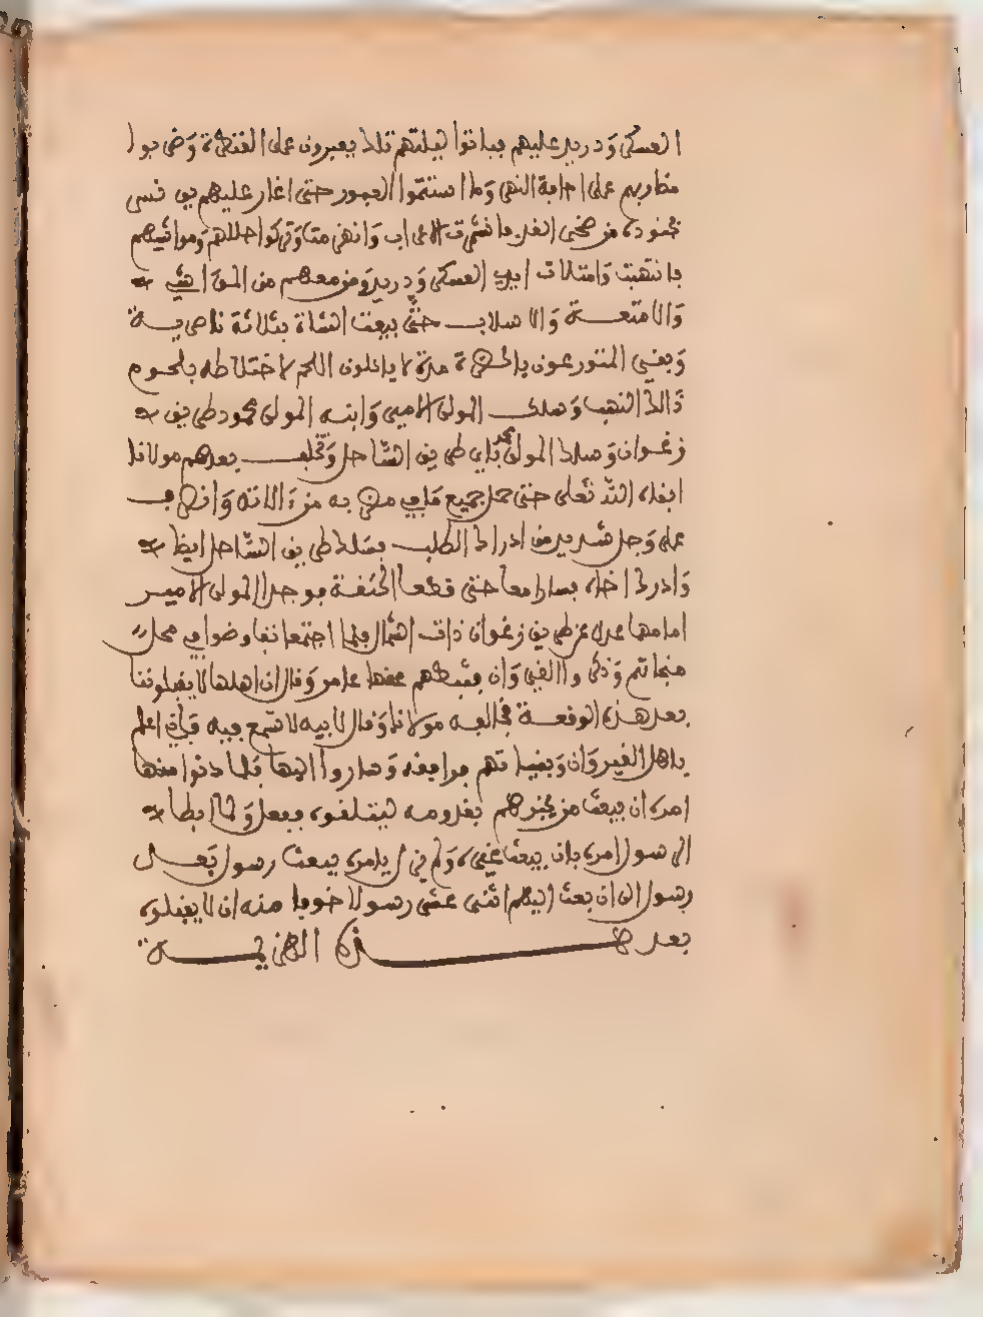 العسكر ودريد عليهم فباتوا ليلتهم تلك يعبرون على القنطرة وضربوا
مضاربهم على حافة النهر وما استتموا العبور حتى اغار عليهم يونس
بجنوده من ضحى الغد فانتشرت الاعراب وانهزمت وتركوا حللهم ومواشيهم
فانتهبت وامتلات ايدي العسكر ودريد ومن معهم من المواشي
والامتعة والاسلاب حتى بيعت الشاة بثلاثة ناصرية
وبقي المتورعون بالحضرة مدة لا ياكلون اللحم لاختلاطه بلحوم
ذالك النهب وسلك المولى الامير وابنه المولى محمود طريق
زغوان وسلك المولى محمد باي طريق الساحل وتخلف بعدهم مولانا
ابقاه الله تعلى حتى حمل جميع ما في به من ءالاته وانصرف
على وجل شديد من ادراك الطلب فسلك طريق الساحل ايضا
وادرك اخاه فسارا معا حتى قطعا الخنفة فوجدا المولى الامير
امامهما عدل عن طريق زغوان ذات الشمال فلما اجتمعا تفاوضوا في محل
منجاتهم وذكروا القيروان فثبطهم عنها عامر وقال ان اهلها لا يقبلوننا
بعد هذه الوقعة فخالفه مولانا وقال لابيه لا تسمع فيه فاني اعلم
باهل القيروان وبنياتهم فوافقه وساروا اليها فلما دنوا منها
امره ان يبعث من يخبرهم بقدومه ليتلقوه ففعل ولما ابطا
الرسول امره بان يبعث غيره ولم يزل يامره ببعث رسول بعد
رسول الى ان بعث اليهم اثنى عشر رسولا خوفا منه ان لا يقبلوه
بعد هذه الهزيمة